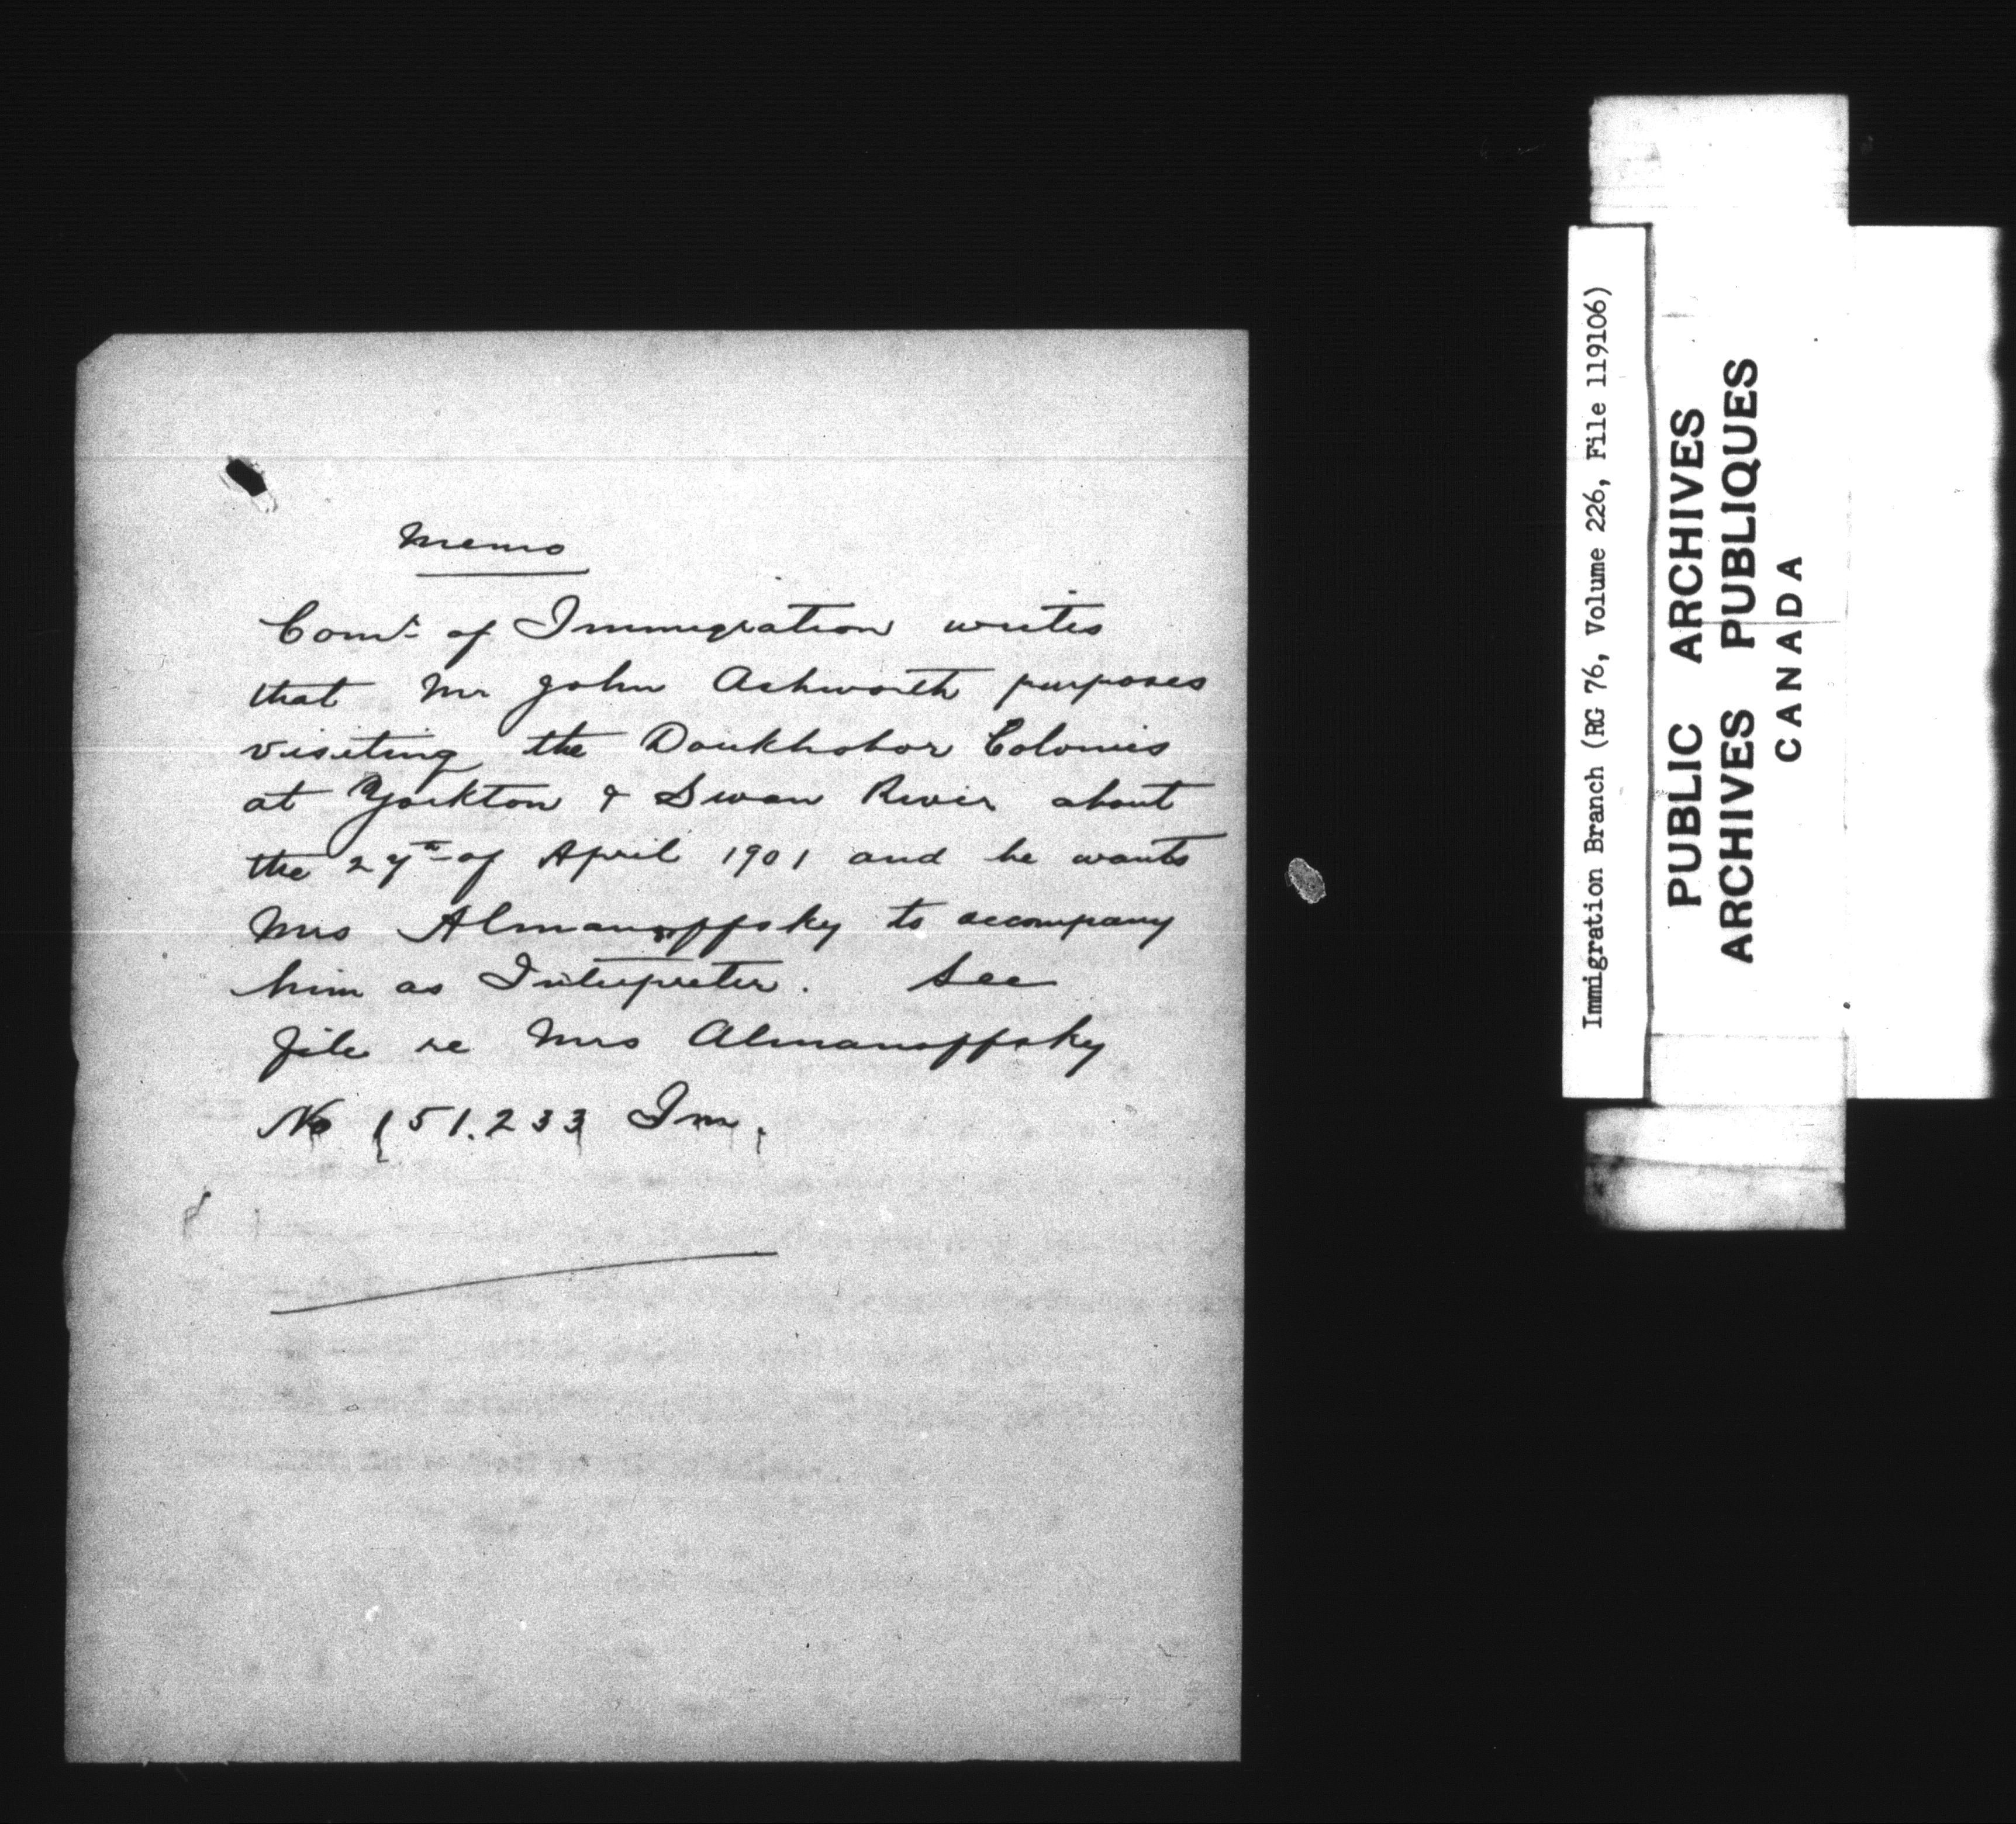 Memo
Comr. of Immigration writes
that Mr John Ashworth purposes
visiting the Doukhobor Colonies
at Yorkton & Swan River about
the 27th of April 1901 and he wants
Mrs Almanoffsky to accompany
him as Interpreter. See
file re Mrs Almanoffsky
No 151.233 Im.
Immigration Branch (RG 76, Volume 226, File 119106)
PUBLIC ARCHIVES
ARCHIVES PUBLIQUES
CANADA